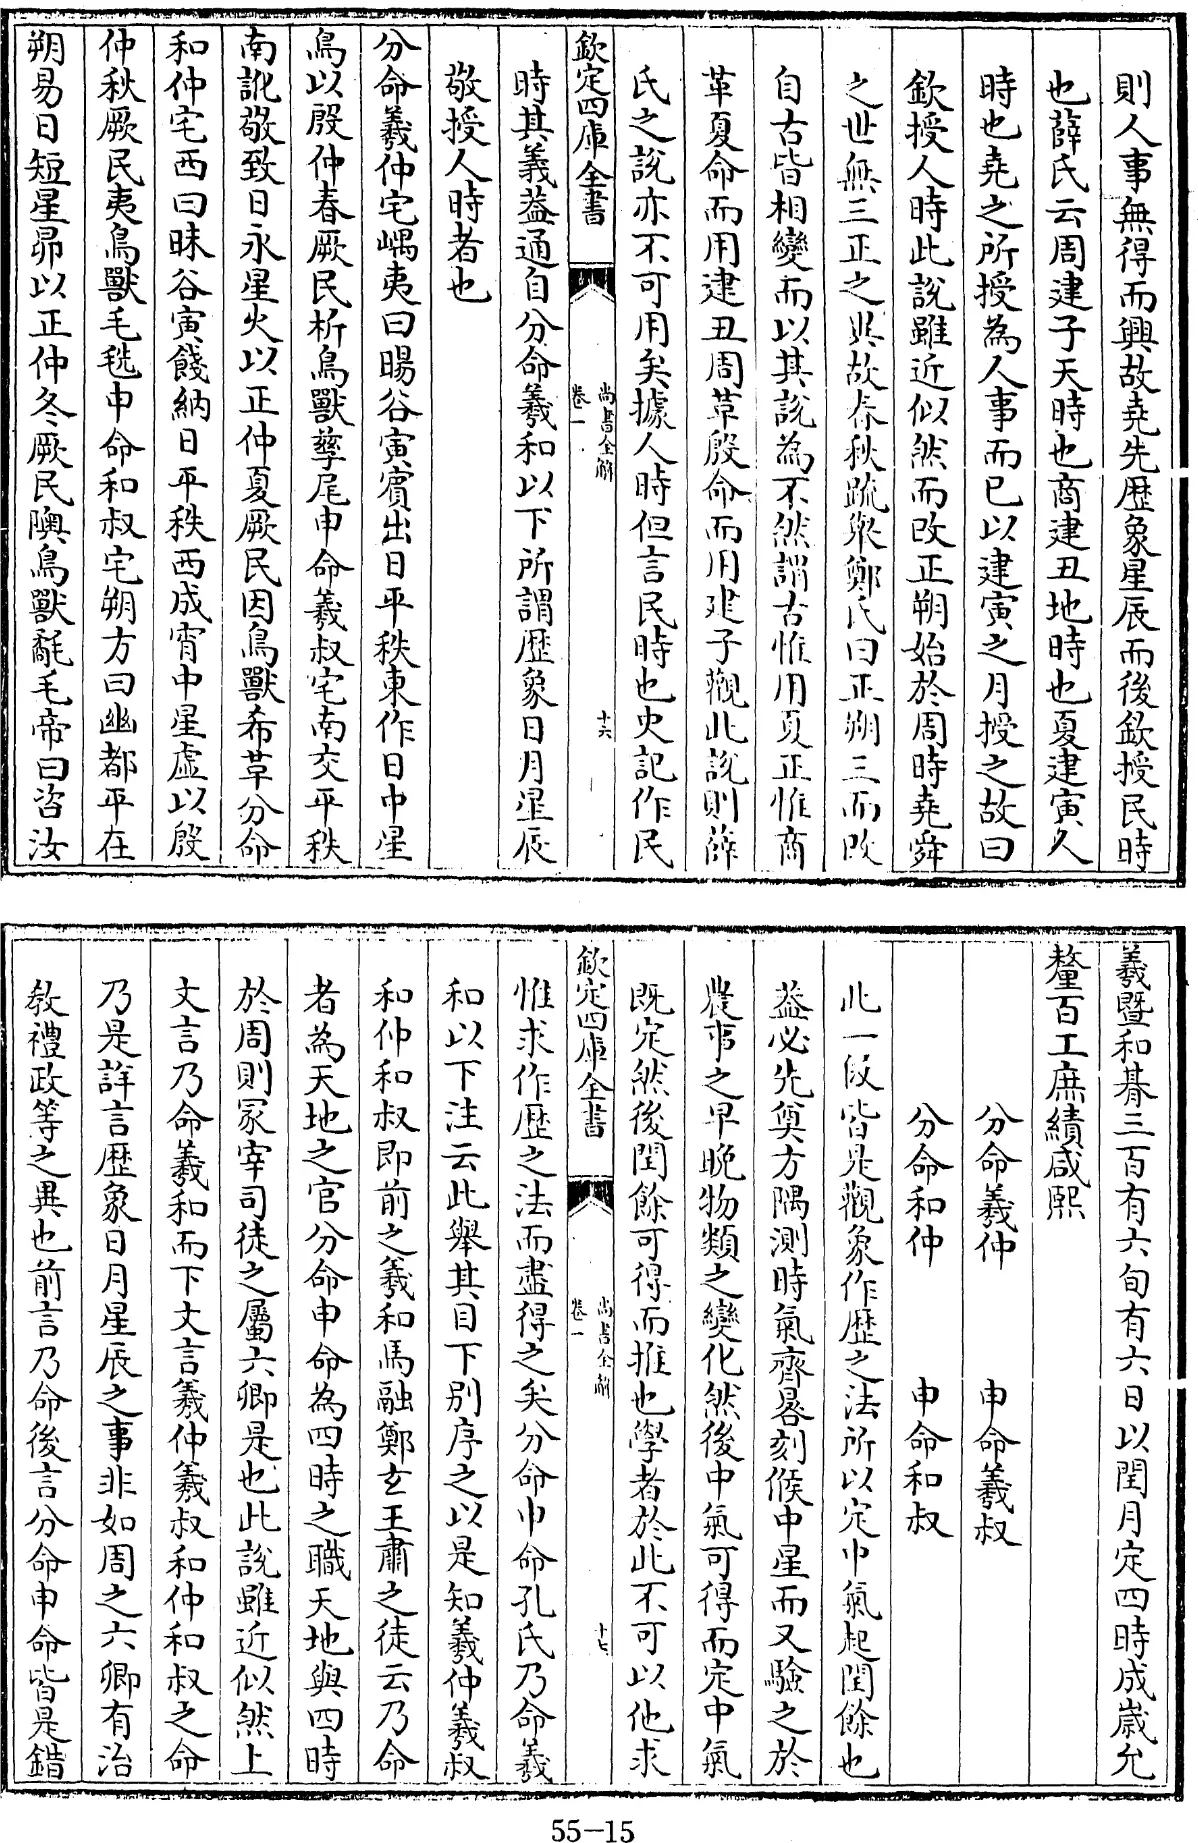 則人事無得而興故堯先歴象星辰而後欽授民時
也薛氏云周建子天時也商建丑地時也夏建寅人
時也堯之所授為人事而已以建寅之月授之故曰
欽授人時此說雖近似然而改正朔始於周時堯舜
之世無三正之異故春秋疏衆鄭氏曰正朔三而改
自古皆相變而以其說為不然謂古惟用夏正惟商
革夏命而用建丑周革殷命而用建子觀此說則薛
氏之說亦不可用矣據人時但言民時也史記作民
欽定四庫全書
尚書全解
卷一
十六
時其義葢通自分命羲和以下所謂歴象日月星辰
敬授人時者也
分命羲仲宅嵎夷曰暘谷寅賓出日平秩東作日中星
鳥以殷仲春厥民析鳥獸孳尾申命羲叔宅南交平秩
南訛敬致日永星火以正仲夏厥民因鳥獸希革分命
和仲宅西曰昧谷寅餞納日平秩西成宵中星虛以殷
仲秋厥民夷鳥獸毛毨申命和叔宅朔方曰幽都平在
朔易日短星昴以正仲冬厥民隩鳥獸氄毛帝曰咨汝
羲暨和朞三百有六旬有六日以閏月定四時成歲允
釐百工庶績咸熙
分命羲仲　申命羲叔
分命和仲　申命和叔
此一段皆是觀象作歴之法所以定中氣起閏餘也
葢必先奠方隅測時氣齊晷刻候中星而又驗之於
農事之早晚物類之變化然後中氣可得而定中氣
既定然後閏餘可得而推也學者於此不可以他求
欽定四庫全書
尚書全解
卷一
十七
惟求作歴之法而盡得之矣分命申命孔氏乃命羲
和以下注云此舉其目下別序之以是知羲仲羲叔
和仲和叔即前之羲和馬融鄭玄王肅之徒云乃命
者為天地之官分命申命為四時之職天地與四時
於周則冢宰司徒之屬六卿是也此說雖近似然上
文言乃命羲和而下文言羲仲羲叔和仲和叔之命
乃是詳言歴象日月星辰之事非如周之六卿有治
教禮政等之異也前言乃命後言分命申命皆是錯
55-15